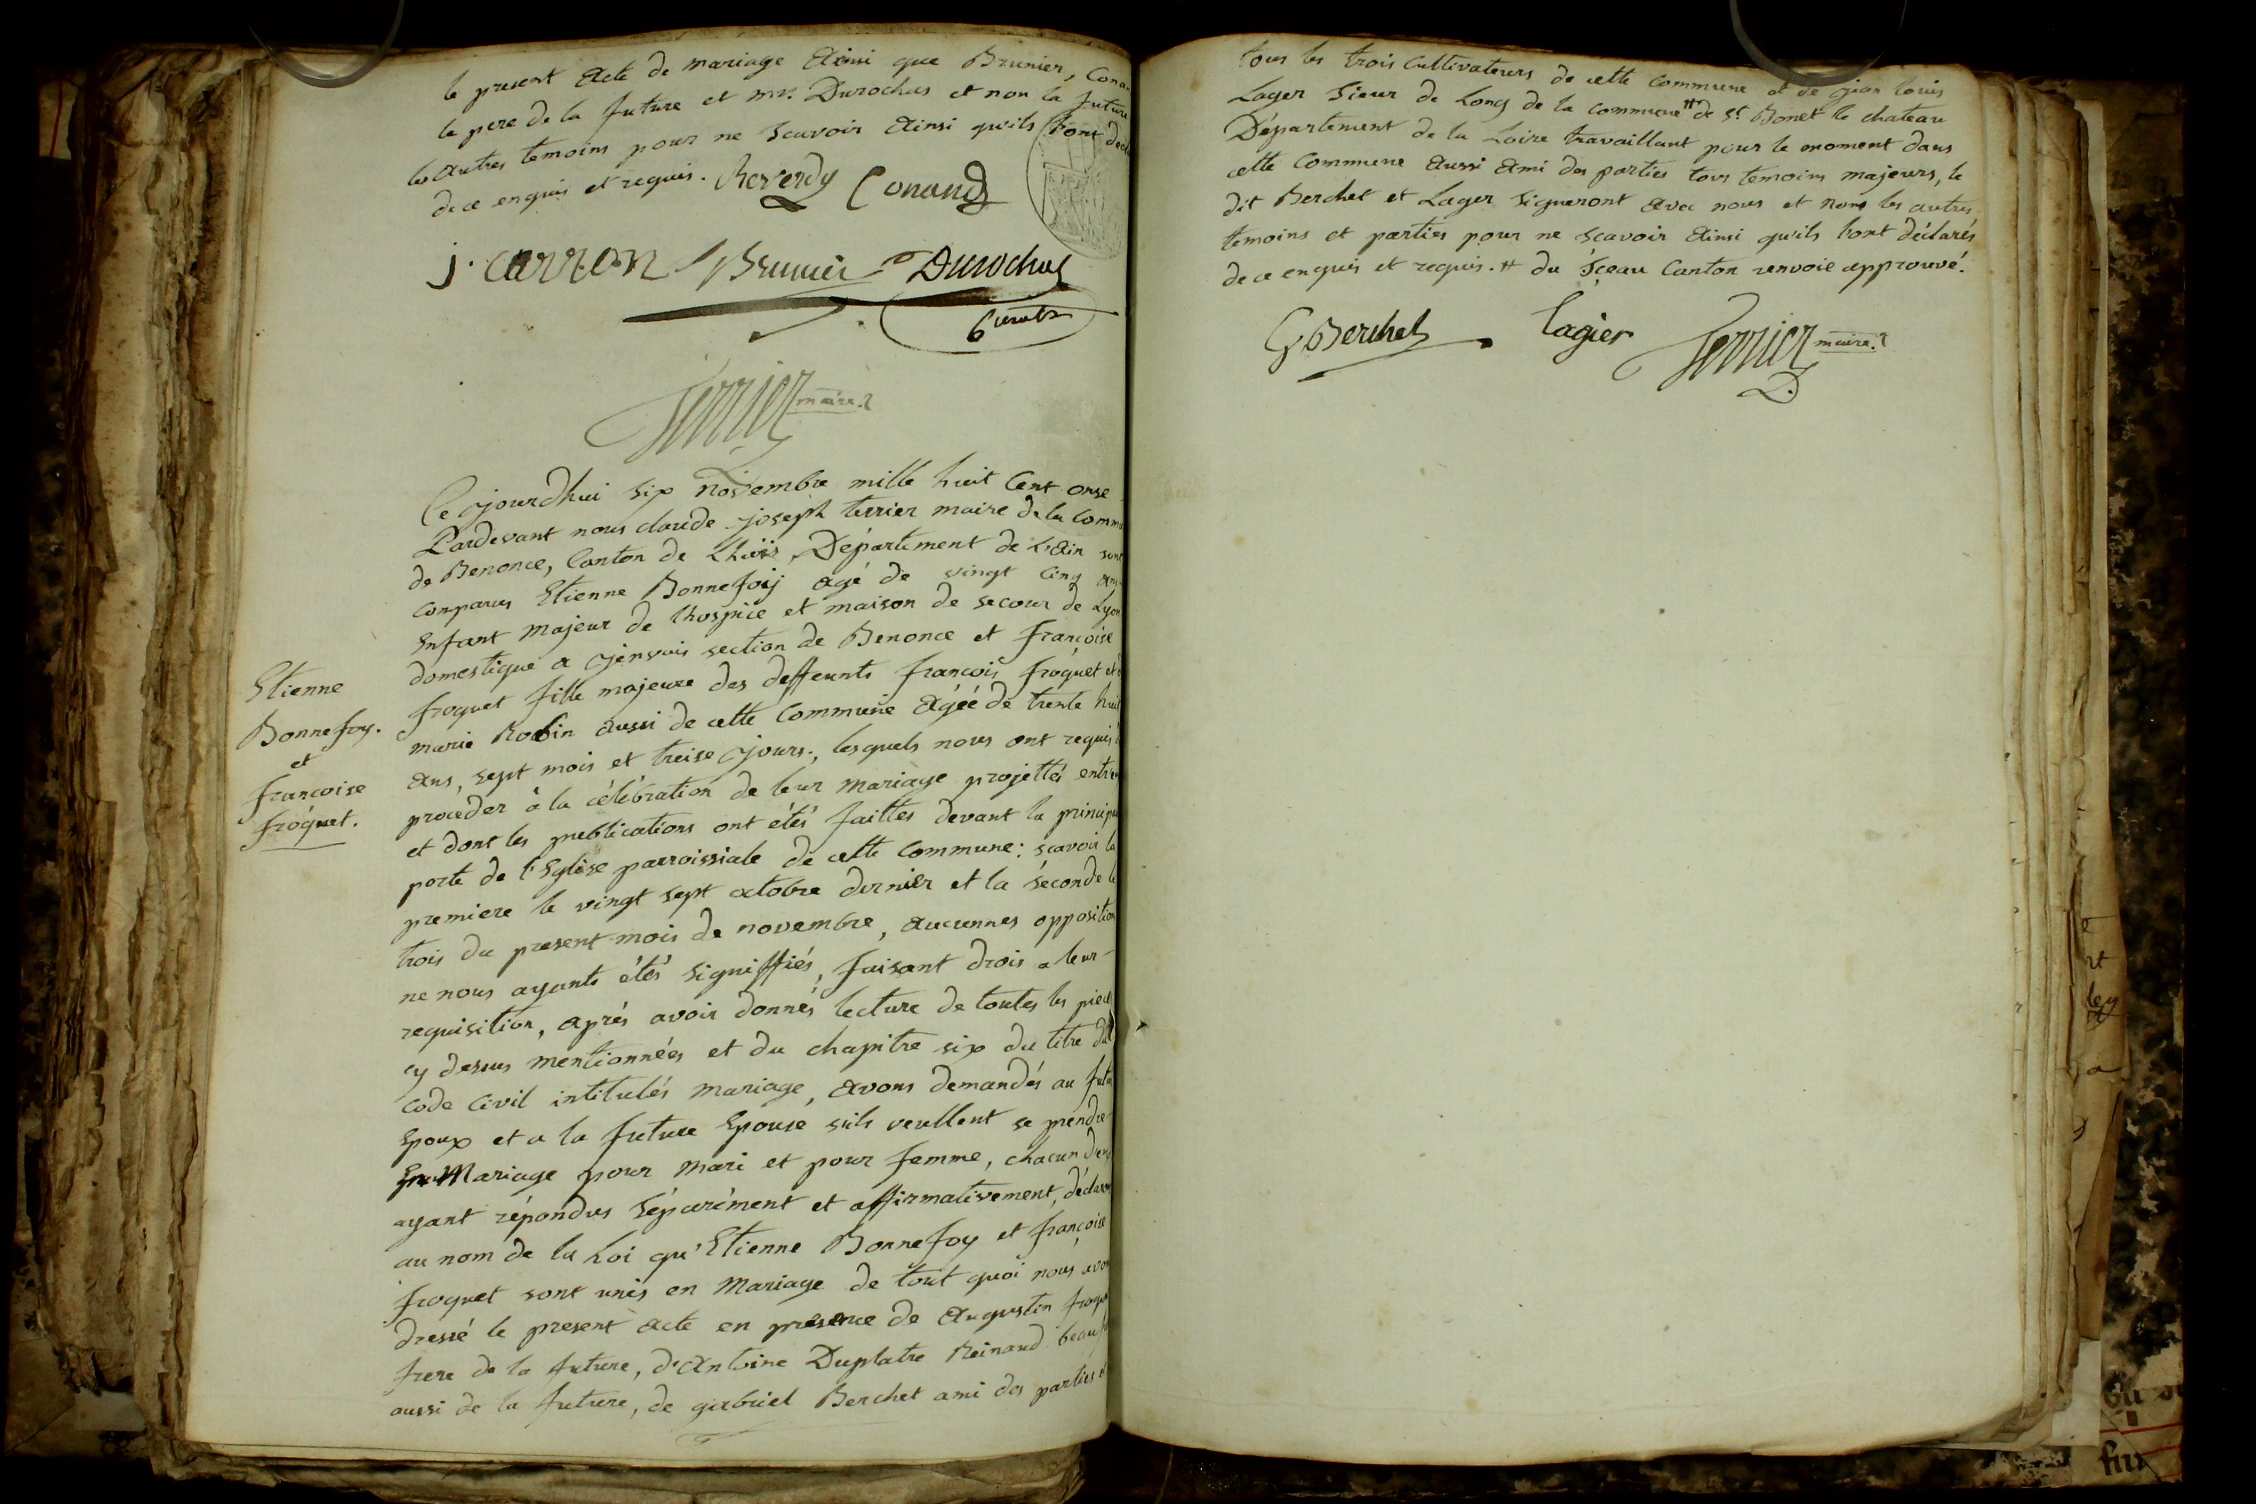 le present acte de mariage ainsi que Brunier, Conan
le pere de la future et mr. Durochas et non la future
les autres temoins pour ne scavoir ainsi qu'ils l'ont décl
de ce enquis et requis. Reverdy Conand
j. carron Brunier Durochas
Terrier maire
Ce jourdhui six novembre mille huit Cent onse
Pardevant nous claude joseph terrier maire de la Commu
de Benonce, Canton de Lhuis, Département de L'ain sont
comparus Etienne Bonnefoij agé de vingt cinq ans
Enfant majeur de lhospice et maison de secour de Lyon
domestique a section de Benonce et françoise
froquet fille majeure des deffeunts françois froquet et d
marie Robin aussi de cette Commune agéé de trente huit
ans, sept mois et treise jours, lesquels nous ont requis
proceder à la célébration de leur mariage projettés entre
et dont les publications ont étés faittes devant la principa
porte de l'Eglise parroissiale de cette Commune: scavoir la
premiere le vingt sept octobre dernier et la séconde le
trois du present mois de novembre, aucunnes opposition
ne nous ayants étés signiffiés, faisant drois a leur
requisition, aprés avoir donnés lecture de toutes les piec
cy dessus mentionnées et du chapitre six du titre du
code Civil intitulés mariage, avons demandés au futu
Epoux et a la future Epouse sils veullent se prendre
En Mariage pour mari et pour femme, chacun d'eu
ayant répondus Séparément et affirmativement, déclaron
au nom de la Loi qu'Etienne Bonnefoy et françoise
froquet sont unis en Mariage de tout quoi nous avon
dressé le present acte en présence de Augustin froqu
frere de la future, d'Antoine Duplatre Reinaud beauf
aussi de la future, de gabriel Berchet ami des parties e
Etienne
Bonnefoy.
et
françoise
fróquet.
tous les trois Cultivateurs de cette Commune et de jean louis
Lager Sieur de Long de la commune # de St. Bonet le chateau
Département de la Loire travaillant pour le moment dans
cette Commune aussi ami des parties tous temoins majeurs, le
dit Berchet et Lager signeront avec nous et non les autres
temoins et parties pour ne scavoir ainsi qu'ils l'ont déclarés
de ce enquis et requis. # du Sceau Canton renvoie approuvé.
G Berchet Lagier Terrier maire